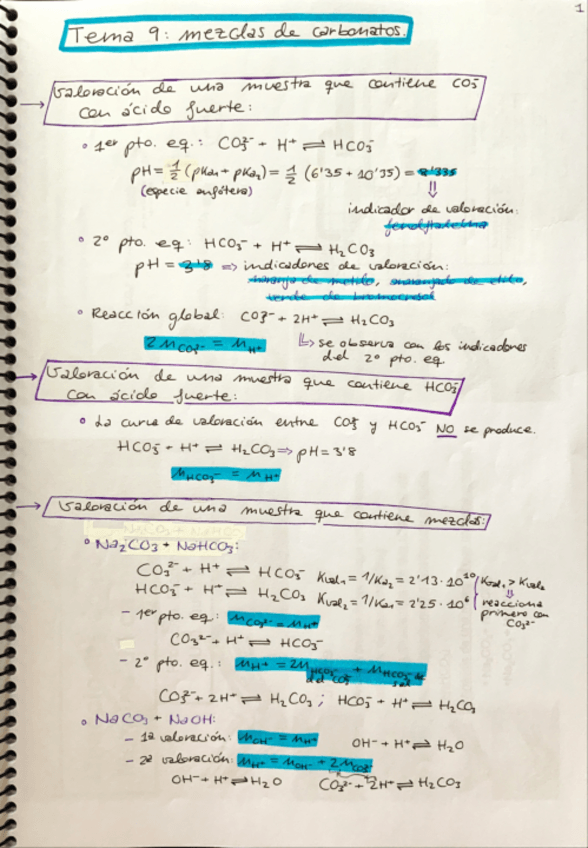 1
Tema 9: mezclas de carbonatos.
→ Valoración de una muestra que contiene CO3²⁻
con ácido fuerte:
• 1er pto. eq.: CO3²⁻ + H⁺ ⇌ HCO3⁻
pH = 1/2 (pKa1 + pKa2) = 1/2 (6'35 + 10'35) = 8'335
(especie anfótera) ⇓
indicador de valoración:
fenolftaleína
• 2º pto. eq: HCO3⁻ + H⁺ ⇌ H2CO3
pH = 3'8 ⇒ indicadores de valoración:
naranja de metilo, anaranjado de etilo,
verde de bromocresol
• Reacción global: CO3²⁻ + 2H⁺ ⇌ H2CO3
2 nCO3²⁻ = nH⁺ ↳ se observa con los indicadores
del 2º pto. eq
→ Valoración de una muestra que contiene HCO3⁻
con ácido fuerte:
• La curva de valoración entre CO3²⁻ y HCO3⁻ NO se produce.
HCO3⁻ + H⁺ ⇌ H2CO3 ⇒ pH = 3'8
nHCO3⁻ = nH⁺
→ Valoración de una muestra que contiene mezclas:
• Na2CO3 + NaHCO3:
CO3²⁻ + H⁺ ⇌ HCO3⁻ Kval1 = 1/Ka2 = 2'13 · 10¹⁰ Kval1 > Kval2
HCO3⁻ + H⁺ ⇌ H2CO3 Kval2 = 1/Ka1 = 2'25 · 10⁶ ⇓ reacciona
primero con
CO3²⁻
- 1er pto. eq: nCO3²⁻ = nH⁺
CO3²⁻ + H⁺ ⇌ HCO3⁻
- 2º pto. eq.: nH⁺ = 2nHCO3⁻ del CO3²⁻ + nHCO3⁻ de
CO3²⁻ + 2H⁺ ⇌ H2CO3 ; HCO3⁻ + H⁺ ⇌ H2CO3
• NaCO3 + NaOH:
- 1ª valoración: nOH⁻ = nH⁺ OH⁻ + H⁺ ⇌ H2O
- 2ª valoración: nH⁺ = nOH⁻ + 2nCO3²⁻
OH⁻ + H⁺ ⇌ H2O CO3²⁻ + 2H⁺ ⇌ H2CO3